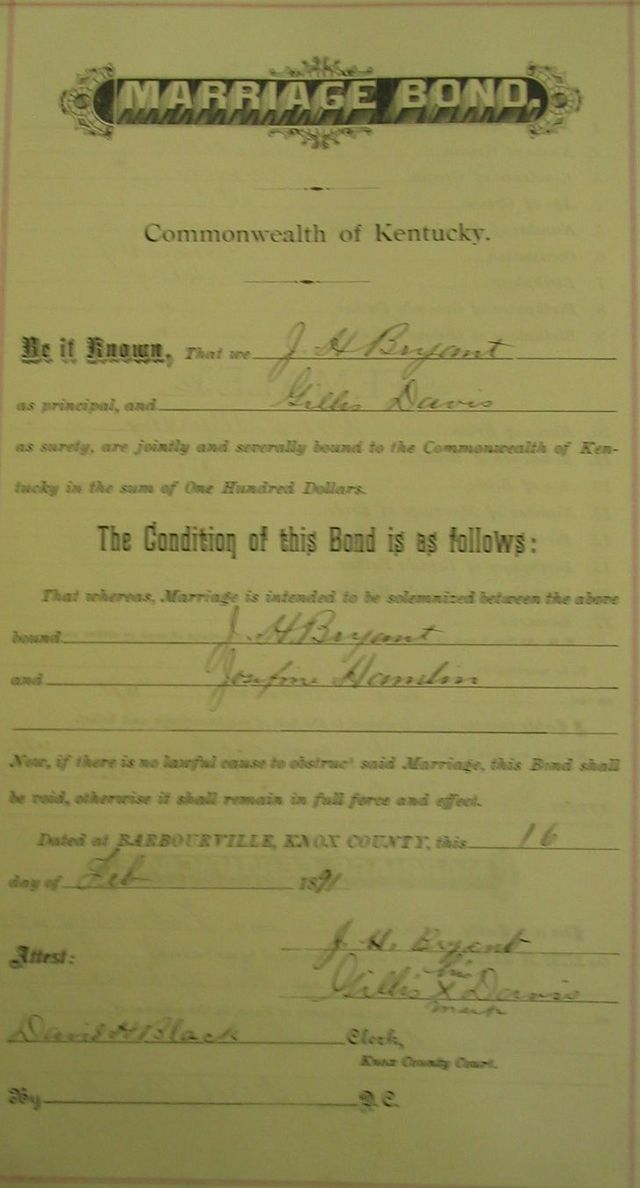 MARRIAGE BOND.
Commonwealth of Kentucky.
Be it Known, That we J. H Bryant
as principal, and Gillis Davis
as surety, are jointly and severally bound to the Commonwealth of Ken-
tucky in the sum of One Hundred Dollars.
The Condition of this Bond is as follows:
That whereas, Marriage is intended to be solemnized between the above
bound J. H Bryant
and Josefine Hamlin
Now, if there is no lawful cause to obstruct said Marriage, this Bond shall
be void, otherwise it shall remain in full force and effect.
Dated at BARBOURVILLE, KNOX COUNTY, this 16
day of Feb 1891
J. H. Bryant
Attest:
his
Gillis X Davis
mark
David H Black Clerk,
Knox County Court.
By D.C.